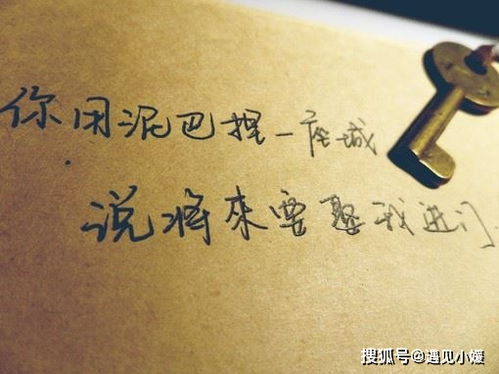 你用泥巴捏一座城
说将來要娶我进门
搜狐号@遇见小媛